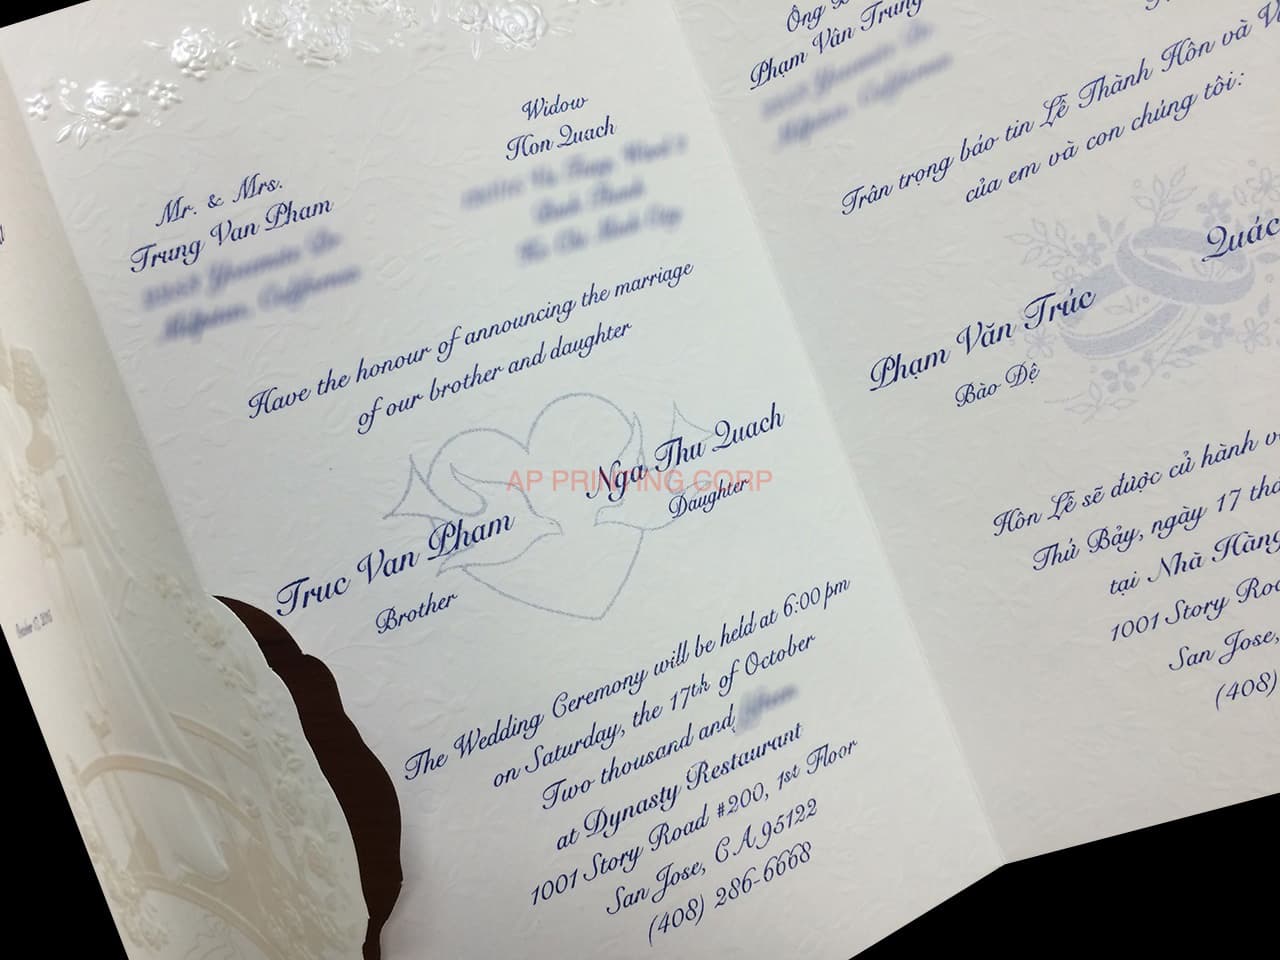 Mr. & Mrs.
Trung Van Pham
Widow
Hon Quach
Have the honour of announcing the marriage
of our brother and daughter
Truc Van Pham
Brother
Nga Thu Quach
Daughter
AP PRINTING CORP
The Wedding Ceremony will be held at 6:00 pm
on Saturday, the 17th of October
Two thousand and
at Dynasty Restaurant
1001 Story Road #200, 1st Floor
San Jose, CA 95122
(408) 286-6668
Ông
Phạm Văn Trung
Trân trọng báo tin Lễ Thành Hôn và
của em và con chúng tôi:
Phạm Văn Trúc
Bào Đệ
Quác
Hôn Lễ sẽ được cử hành
Thứ Bảy, ngày 17
tại Nhà Hàng
1001 Story
San Jose,
(408)